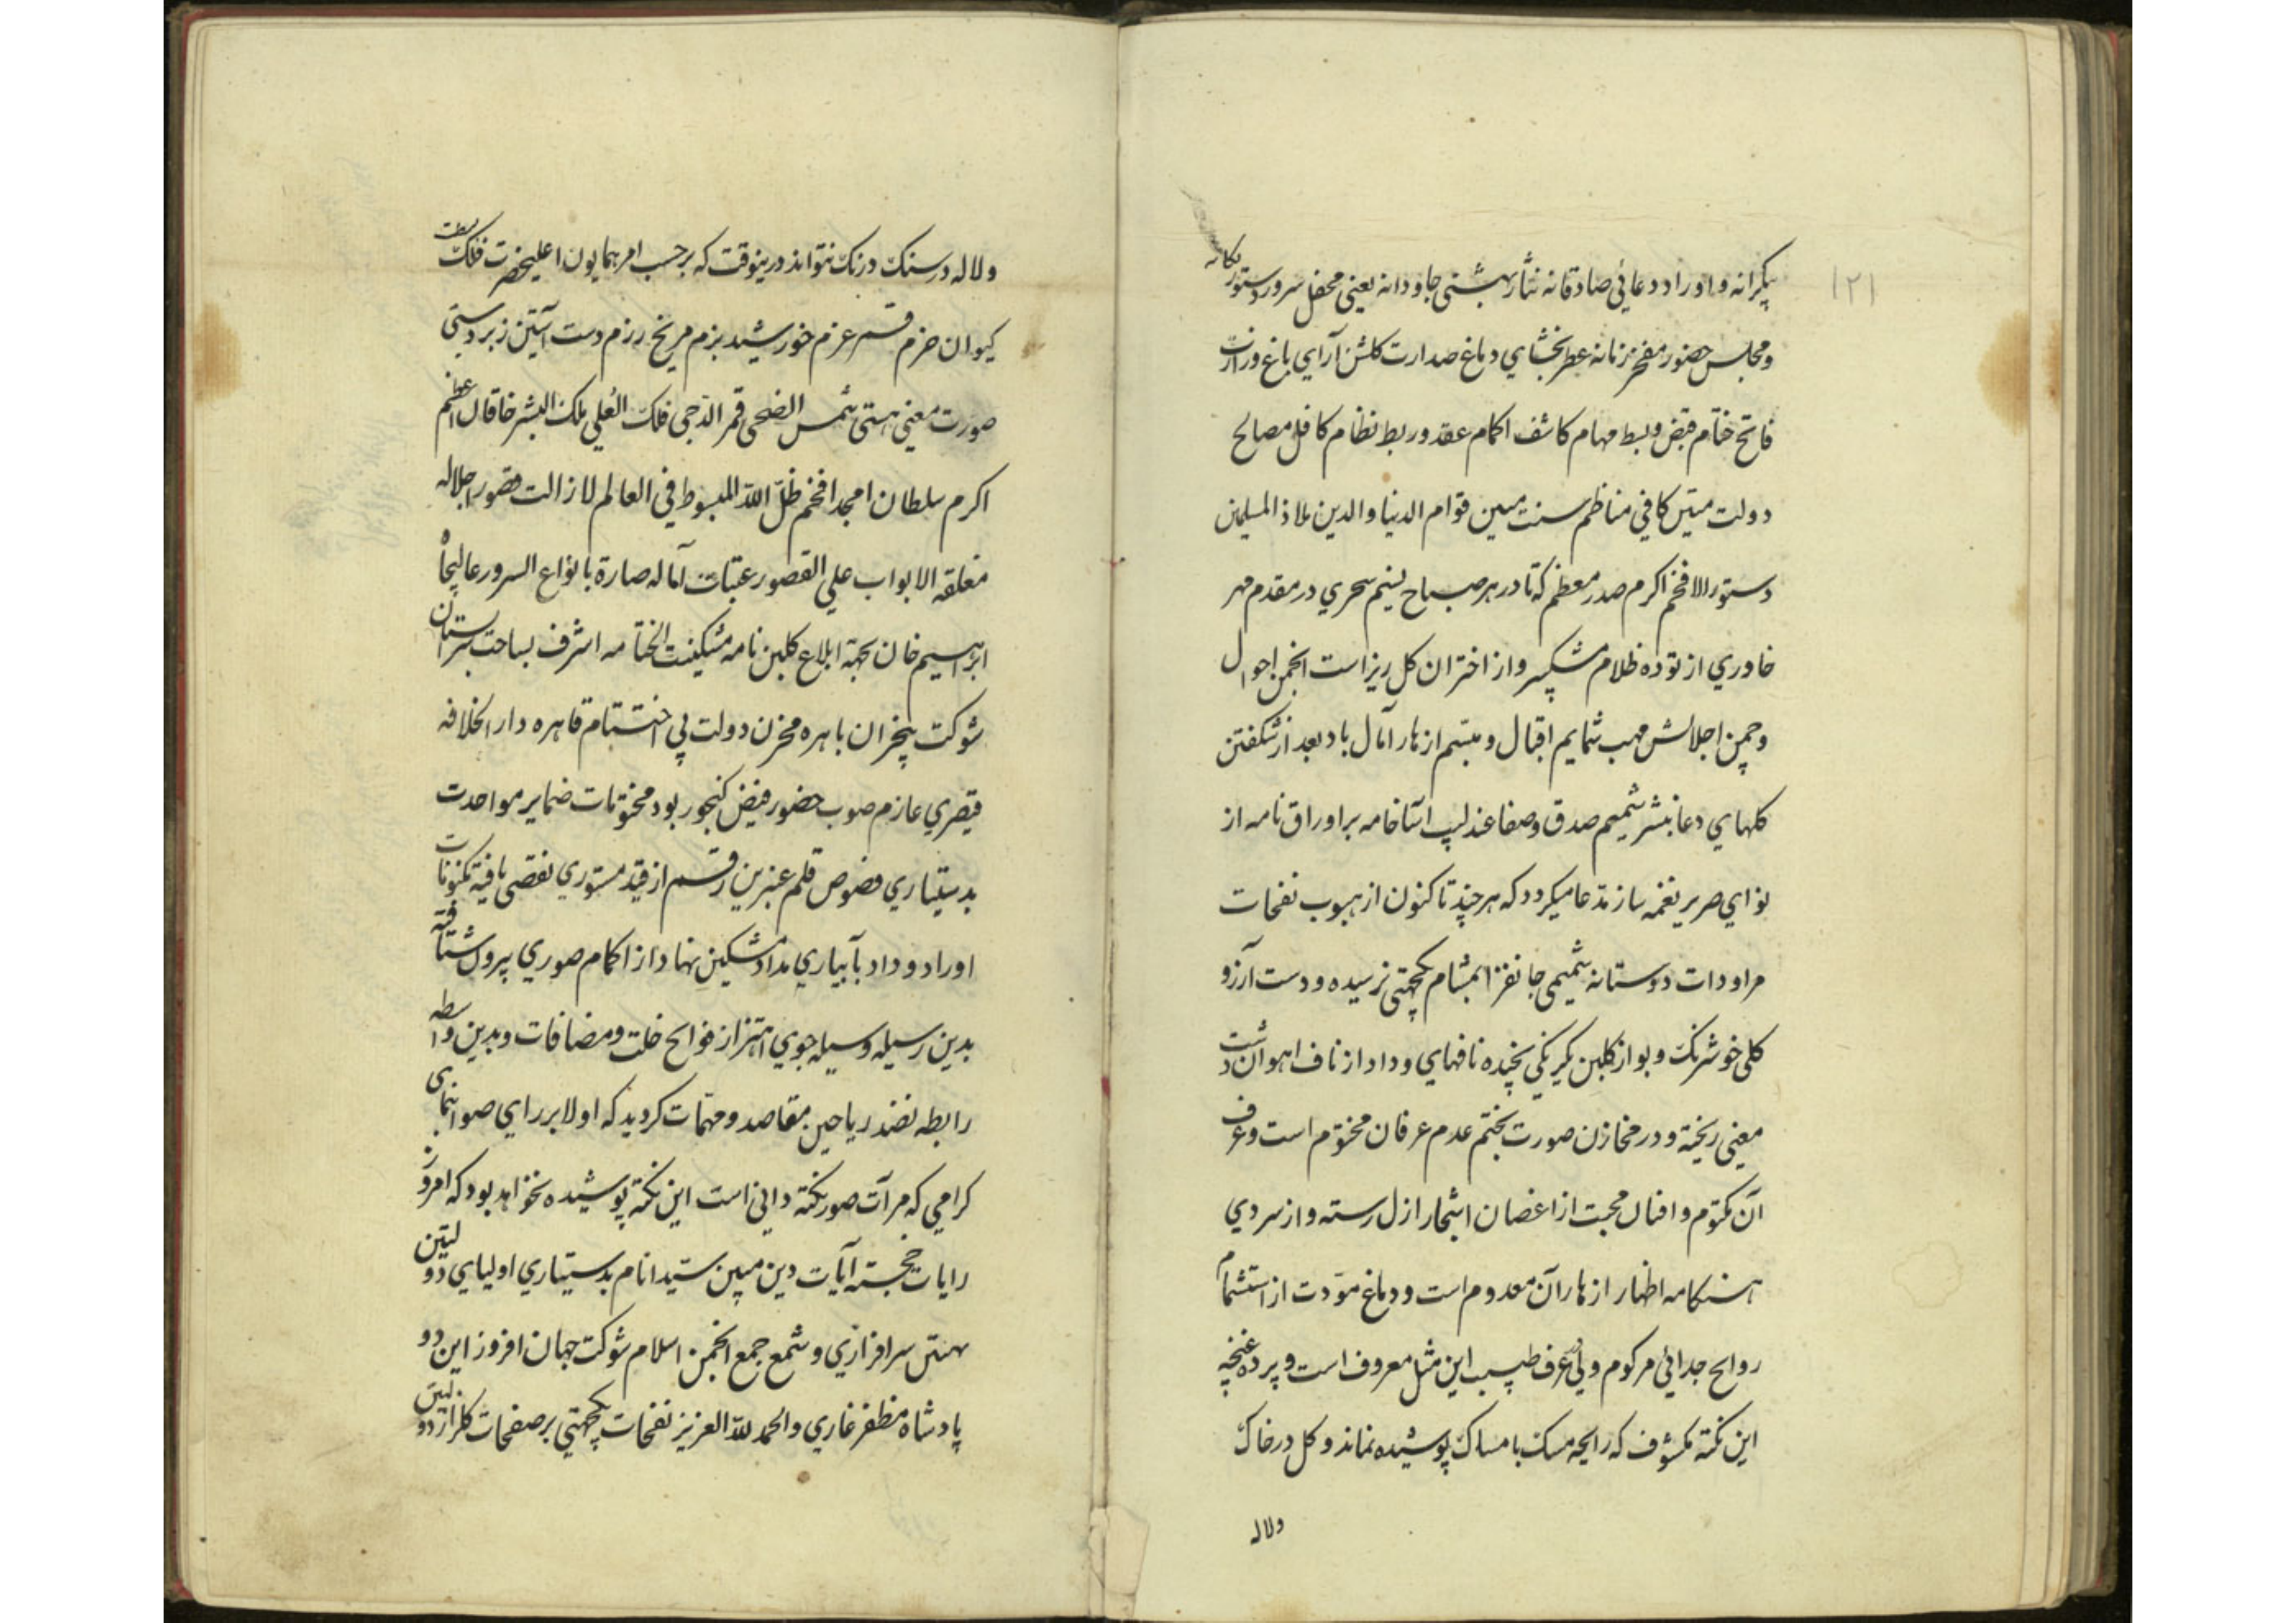 ۱۲۱
بیکرانه و اوراد دعائی صادقانه نثار بهشتی جاودانه یعنی محفل سرور دستور یکانه
و مجلس حضور مفخر زمانه عطر بخشای دماغ صدارت کلشن آرای باغ وزارت
فاتح ختام قبض و بسط مهام کاشف اکمام عقد و ربط نظام کافل مصالح
دولت متین کافی مناظم سنت مبین قوام الدنیا والدین ملاذ المسلمین
دستور الافخم اکرم صدر معظم که تا در هر صباح نسیم سحری در مقدم مهر
خاوری از توده ظلام مشکبیز و از اختران کل ریز است انجمن احوال
و چمن اجلالش مهب شمایم اقبال و مبتسم ازهار آمال باد بعد از شکفتن
کلهای دعا بنشر شمیم صدق و صفا عندلیب آسا خامه بر اوراق نامه از
نوای صریر نغمه ساز مدعا میکردد که هر چند تا کنون از هبوب نفحات
مراودات دوستانه شمیمی جانفزا بمشام یکجهتی نرسیده و دست آرزو
کلی خوشرنک و بو از کلبن یکرنکی نچیده نافهای وداد از ناف اهوان دشت
معنی ریخته و در مخازن صورت بختم عدم عرفان مختوم است و عرف
آن مکتوم و افنان محبت از اغصان اشجار ازل رسته و از سردی
هنکامه اظهار ازهار آن معدوم است و دماغ مودت از استشمام
روایح جدائی مزکوم ولی در عرف طیب این مثل معروف است و پرده غنچه
این نکته مکشوف که رایحه مسک بامساک پوشیده نماند و کل در خاک
ولاله
و لاله در سنک درنک نتواند درینوقت که بر حسب امر همایون اعلیحضرت فلک بسطت
کیوان حزم قسر عزم خورشید بزم مریخ رزم دست آستین زبردستی
صورت معنی هستی شمس الضحی قمر الدجی فلک العلی ملک البشر خاقان اعظم
اکرم سلطان امجد افخم ظل الله المبسوط فی العالم لا زالت قصور اجلاله
مغلقه الابواب علی القصور عتبات آماله صارة بانواع السرور عالیجاه
ابراهیم خان بجهة ابلاغ کلبن نامه مشکینت الختامه اشرف بساحت بستان
شوکت بیخزان باهره مخزن دولت بی اختتام قاهره دار الخلافه
قیصری عازم صوب حضور فیض کنجور بود مختومات ضمایر مواحدت
بدستیاری فصوص قلم عنبرین رقم از قید مستوری تفصی یافته مکنونات
اوراد وداد بآبیاری مداد مشکین نهاد از اکمام صوری بیرون شتافته
بدین رسیله وسیله جوی اهتزاز فوایح خلت و مضافات و بدین واسطه
رابطه نضد ریاحین مقاصد و مهمات کردید که اولا بر رای صوابنمای
کرامی که مرآت صور نکته دانی است این نکته پوشیده نخواهد بود که امروز
رایات خجسته آیات دین مبین سید انام بدستیاری اولیای دولتین
بهیتین سرافرازی و شمع جمع انجمن اسلام شوکت جهان افروز این دو
پادشاه مظفر غازی والحمد لله العزیز نفحات یکجهتی بر صفحات کلزار دولتین